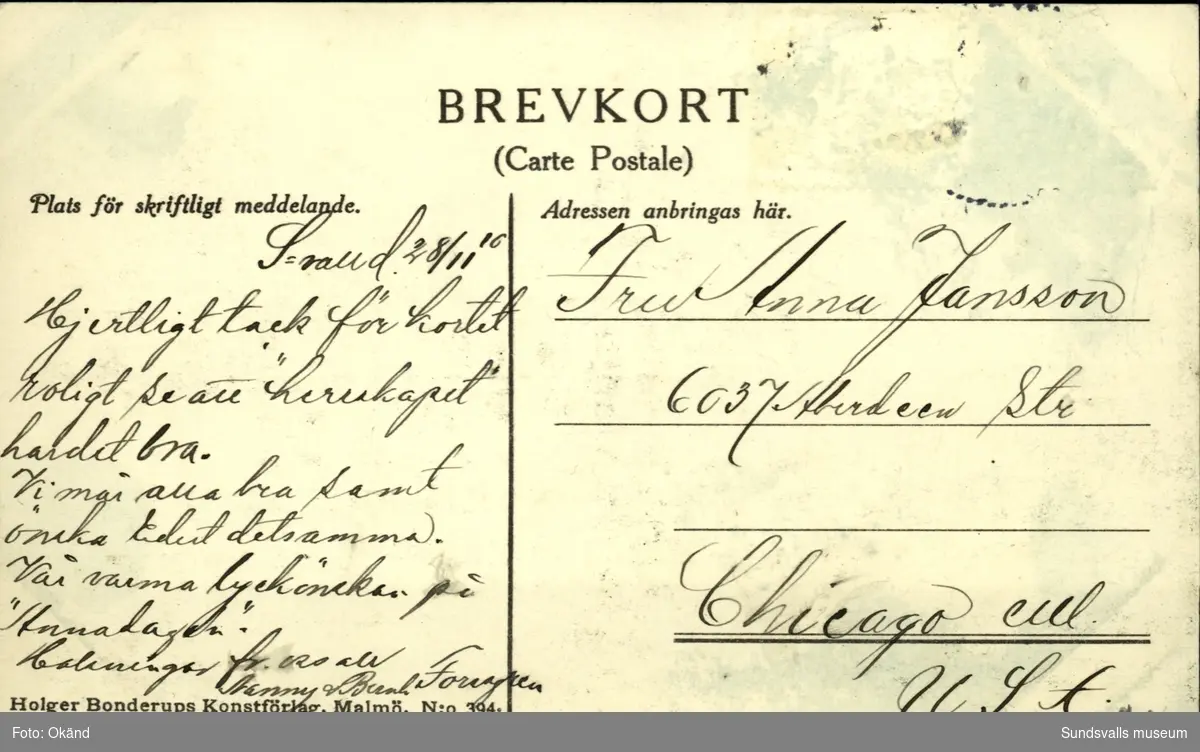 BREVKORT
(Carte Postale)
Plats för skriftligt meddelande.
S=vall d. 28/11 10
Hjertligt tack för kortet
roligt se att "herrskapet"
har det bra.
Vi mår alla bra samt
önska Eder detsamma.
Vår varma lyckönskan på
"Annadagen".
Helsningar fr. oss all
Nanny & Bernh.
Holger Bonderups Konstförlag, Malmö. N:o 394.
Adressen anbringas här.
Fru Anna Jansson
6037 Aberdeen Str
Chicago Ill.
U. S. A.
Foto: Okänd
Sundsvalls museum